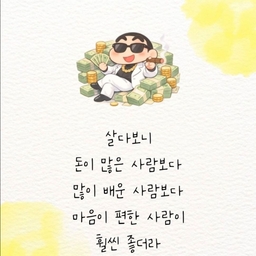 살다보니
돈이 많은 사람보다
많이 배운 사람보다
마음이 편한 사람이
훨씬 좋더라